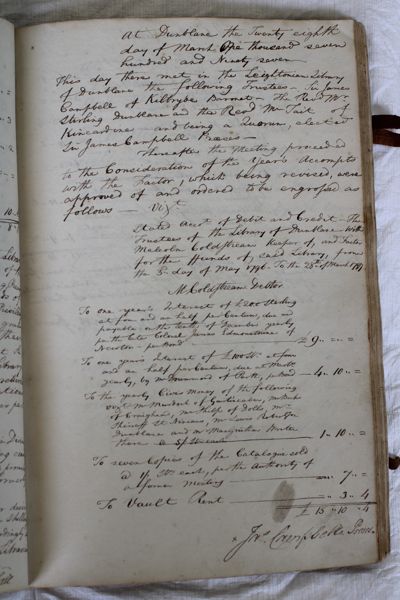 At Dunblane the Twenty eighth
day of March One thousand seven
hundred and Ninety seven
This day there met in the Leightonian Library
of Dunblane the following Trustees - Sir James
Campbell of Kilbryde Barronet - The Revd Mr
Stirling Dunblane and the Revd Mr Tait of
Kincardine - and being a Quorum, elected
Sir James Campbell Preses -
Thereafter the Meeting proceeded
to the Consideration of the Year's Accompts
with the Factor, which being revised, were
approved of and ordered to be engrossed as
follows - Vizt
Stated Accot of Debit and Credit - The
Trustees of the Library of Dunblane With
Malcolm Coldstream Keeper of, and Factor
for the Funds of, said Library, from
the 5 day of May 1796. To the 28th of March 1797
M Coldstream Debtor
To one year's Interest of £200 Sterling
at four and an half per Centum, due and
payable on the tenth of December yearly
per the late Colonel James Edmonstoune of
Newton - per Bond £ 9 ,, = ,, =
To one year's Interest of £100 St. at four
and an half per Centum, due at
yearly, by Mr Drummond of Perth, per Bond - 4 ,, 10 ,, =
To the yearly Cives Money of the following
vizt Mr Murdoch of Gartincaber, Mr
of Craighead, Mr of , Mr
Sheriff St Ninians, Mr
Dunblane and Mr Writer
there @ 5/ St. each 1 ,, 10 ,, =
To seven Copies of the Catalogue sold
@ 1/ St. each, per the Authority of
a former meeting ,, 7 ,, =
To Vault Rent ,, 3 ,, 4
£ 15 ,, 10 ,, 4
Jas Campbell Preses